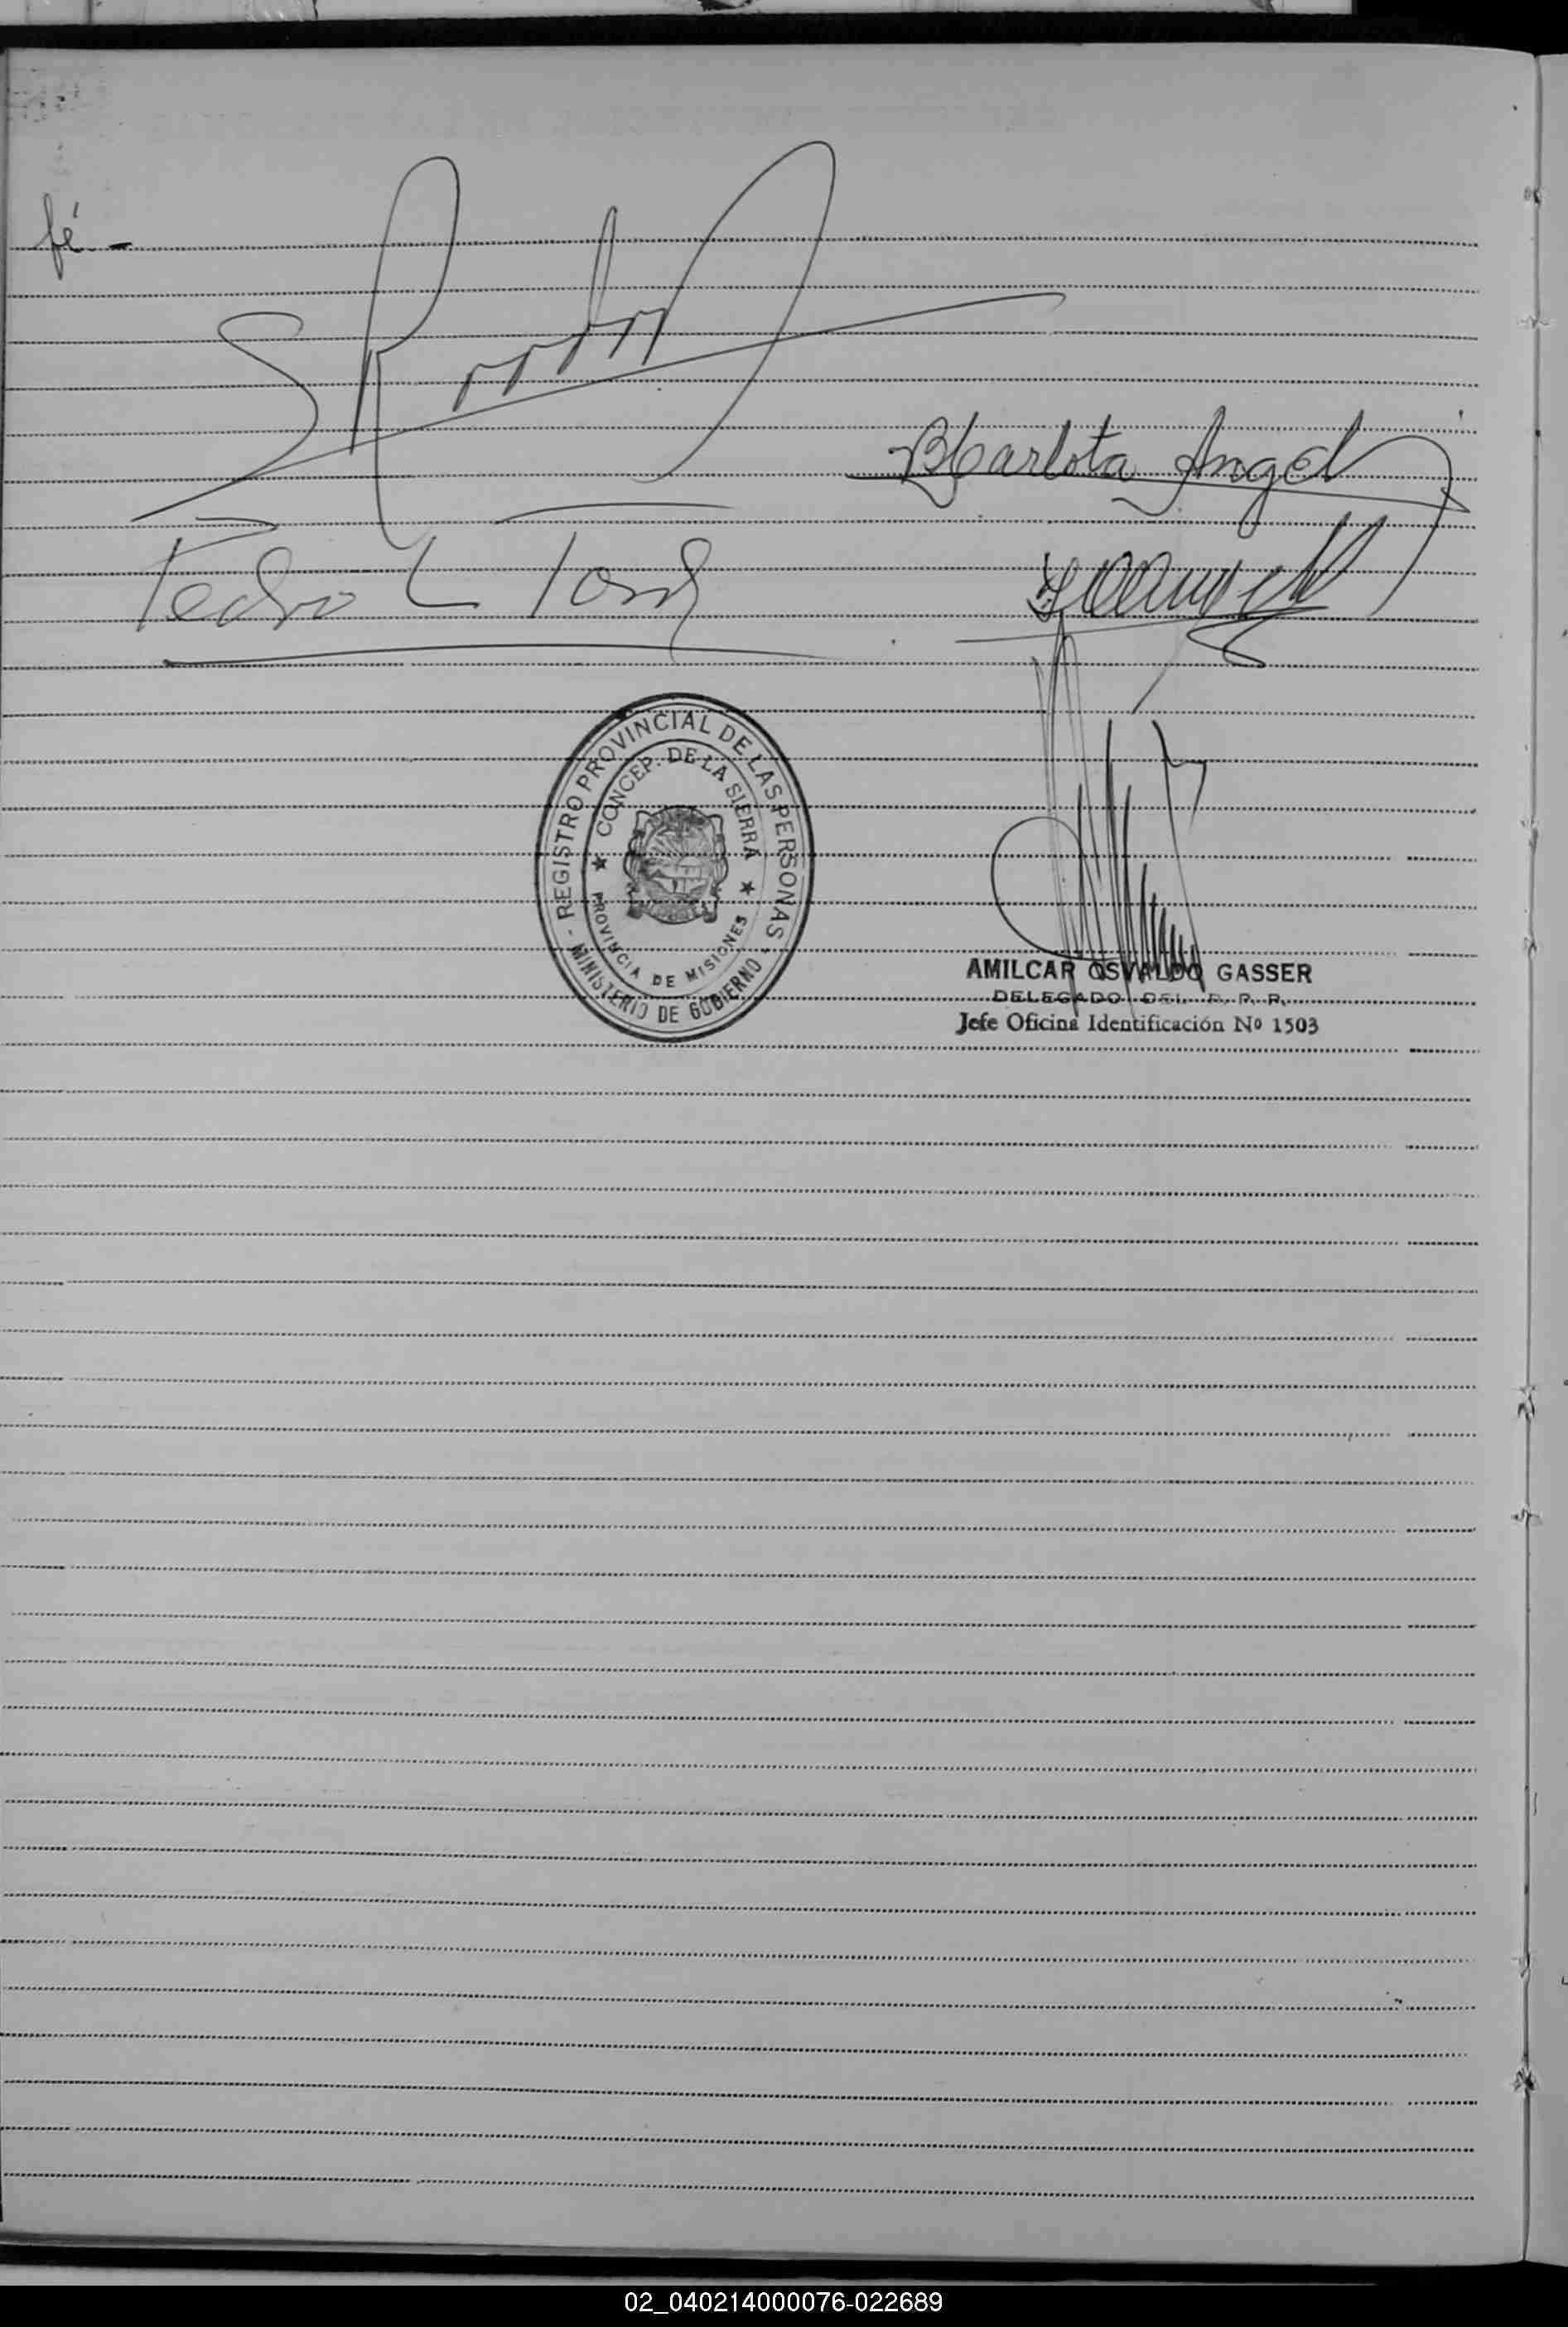 fé -
Carlota Angel
Pedro L
REGISTRO PROVINCIAL DE LAS PERSONAS
CONCEP. DE LA SIERRA
PROVINCIA DE MISIONES
- MINISTERIO DE GOBIERNO -
AMILCAR OSVALDO GASSER
DELEGADO DEL R. P. P.
Jefe Oficina Identificación Nº 1503
02_040214000076-022689